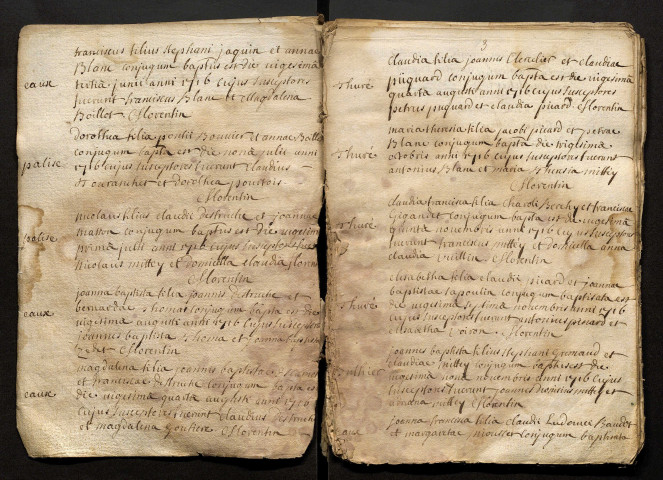 franciscus filius stephani jaquin et annae
Blanc conjugum baptus est die vigesima
eaux
tertia junii anni 1716 cujus susceptores
fuerunt franciscus Blanc et Magdalena
Boillot C florentin
dorothea filia Bouvier et annae
conjugum bapta est die nona julii anni
palise
1716 cujus susceptores fuerunt claudius
et dorothea
C florentin
nicolaus filius claudii destruche et joannae
masson conjugum baptus est die vigesima
palise
prima julii anni 1716 cujus susceptores
Nicolaus mittey et domicella claudia
C florentin
joanna baptista filia joannis destruche et
bernardae conjugum bapta est die
eaux
vigesima augusti anni 1716 cujus susceptores
joannes baptista et joanna
C florentin
magdalena filia joannis baptistae
et franciscae destruche conjugum bapta est
eaux
die vigesima quarta augusti anni 1716
cujus susceptores fuerunt claudius destruche
et magdalena C florentin
3
claudia filia joannis Clerelier et claudiae
piguard conjugum bapta est die vigesima
thuré
quarta augusti anni 1716 cujus susceptores
petrus piguard et claudia picard C florentin
maria theresia filia jacobi picard et petrae
Blanc conjugum bapta die trigesima
thuré
octobris anni 1716 cujus susceptores fuerunt
antonius Blanc et maria theresia mittey
C florentin
claudia francisca filia et franciscae
Gigandet conjugum bapta est die vigesima
thuré
quinta novembris anni 1716 cujus susceptores
fuerunt franciscus mittey et domicella anna
claudia vuillin C florentin
elisabetha filia claudii picard et joannae
baptistae conjugum baptisata est
thuré
die vigesima septima novembris anni 1716
cujus susceptores fuerunt antonius picard et
elisabetha C florentin
joannes baptista filius stephani et
claudiae mittey conjugum baptus est die
vigesima nona novembris anni 1716 cujus
susceptores fuerunt joannes mittey et
mittey C florentin
joanna francisca filia claudii Ludovici
eaux
et margaritae conjugum baptisata